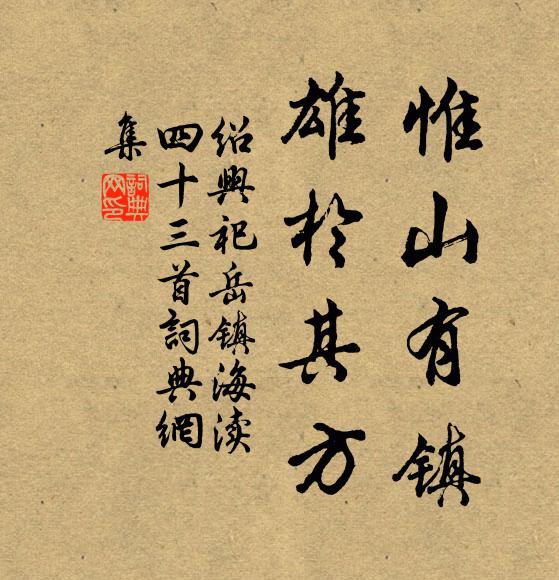 惟山有镇
雄於其方
绍興祀岳镇海渎
四十三首詞典網
集
詞典网印